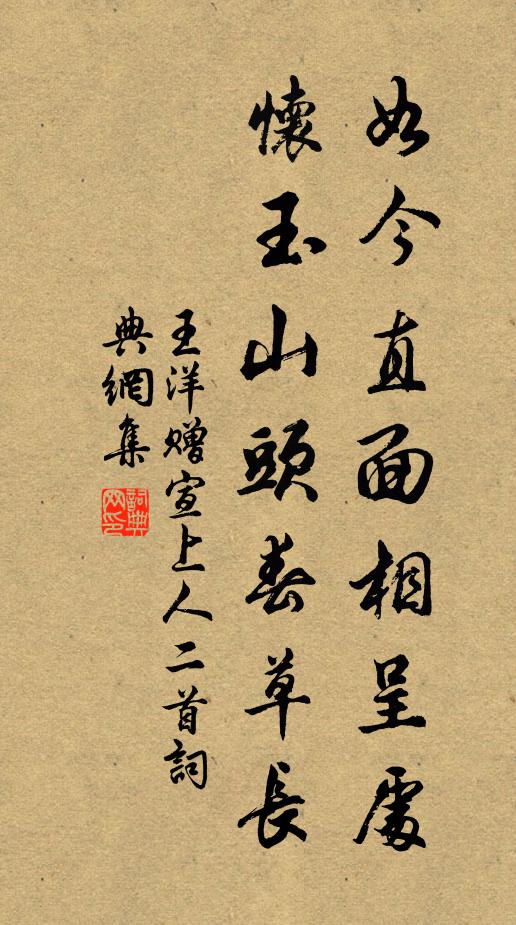 如今直面相呈處
懷玉山頭春草長
王洋贈宣上人二首詞
典網集
詞典網印